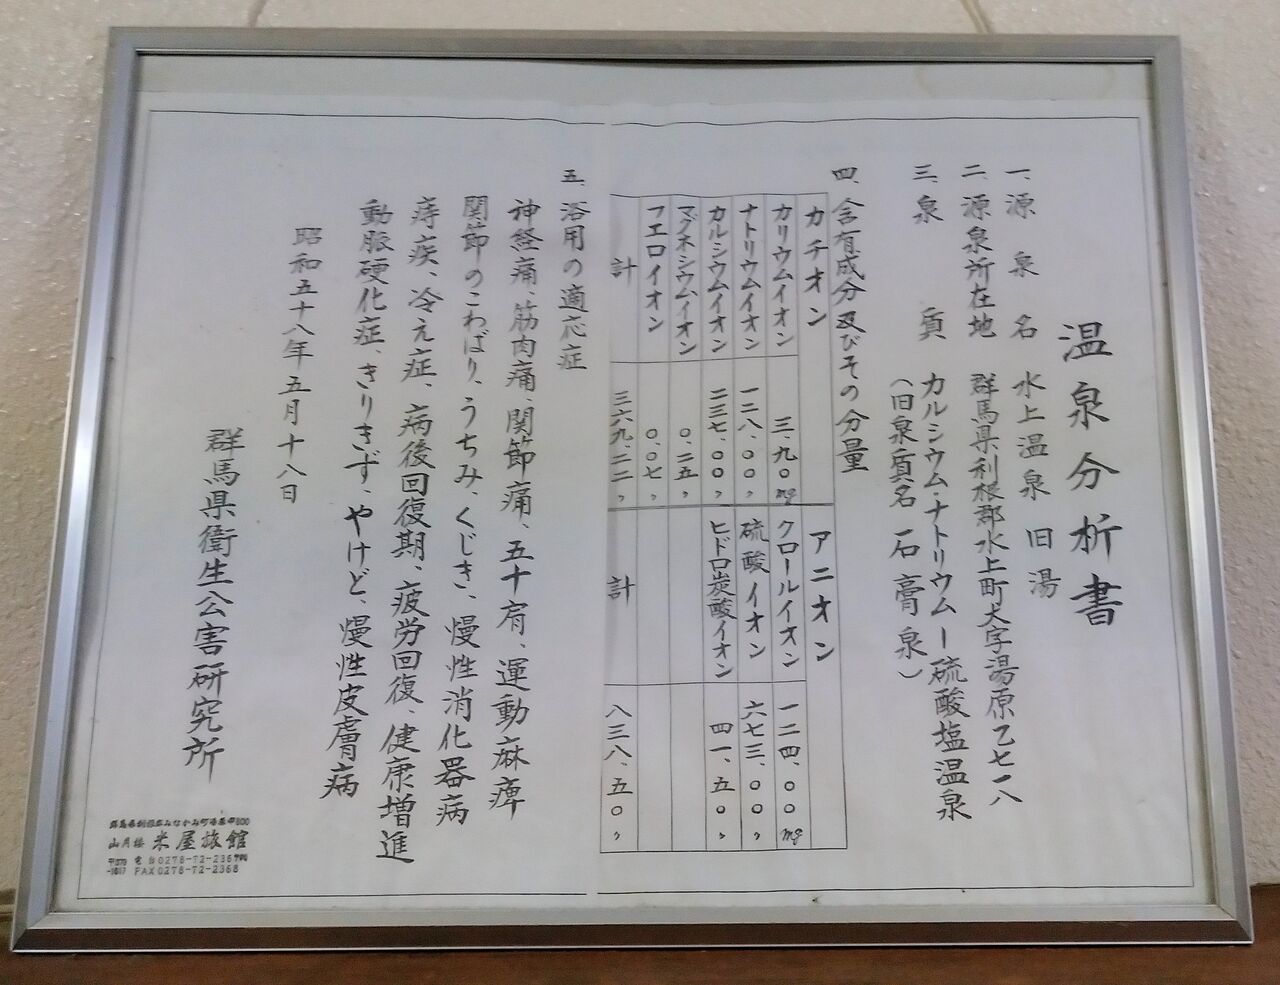 温泉分析書
一、源泉名 水上温泉 旧湯
二、源泉所在地 群馬県利根郡水上町大字湯原乙七一八
三、泉質 カルシウム・ナトリウムー硫酸塩温泉
（旧泉質名 石膏泉）
四、含有成分及びその分量
カチオン アニオン
カリウムイオン 三、九〇mg クロールイオン 一二四、〇〇mg
ナトリウムイオン 一二八、〇〇〃 硫酸イオン 六七三、〇〇〃
カルシウムイオン 二三七、〇〇〃 ヒドロ炭酸イオン 四一、五〇〃
マグネシウムイオン 〇、二五〃
フエロイオン 〇、〇七〃
計 三六九、二二〃 計 八三八、五〇〃
五、浴用の適応症
神経痛、筋肉痛、関節痛、五十肩、運動麻痺
関節のこわばり、うちみ、くじき、慢性消化器病
痔疾、冷え症、病後回復期、疲労回復、健康増進
動脈硬化症、きりきず、やけど、慢性皮膚病
昭和五十八年五月十八日
群馬県衛生公害研究所
山月楼 米屋旅館
FAX0278-72-2368